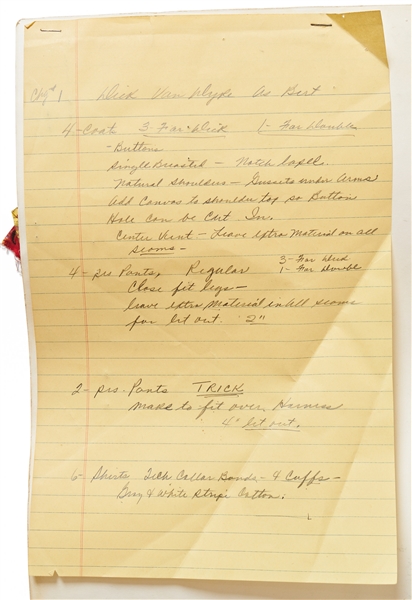 Chg # 1 Dick Van Dyke As Bert
4 - Coat 3 For Dick 1 - For Double
- Buttons
Single Breasted - Notch lapel.
Natural Shoulders - Gussets under Arms
Add Canvas to shoulder top so Button
Hole can be Cut In.
Center Vent - Leave extra Material on all
seams -
4 - prs. Pants, Regular 3 - For Dick
1 - For Double
Close fit legs -
leave extra Material in All seams
for let out. 2"
2 - prs. Pants TRICK
make to fit over Harness
4" let out.
6 - Shirts Collar Bands - & Cuffs -
Gray & White Stripe Cotton.